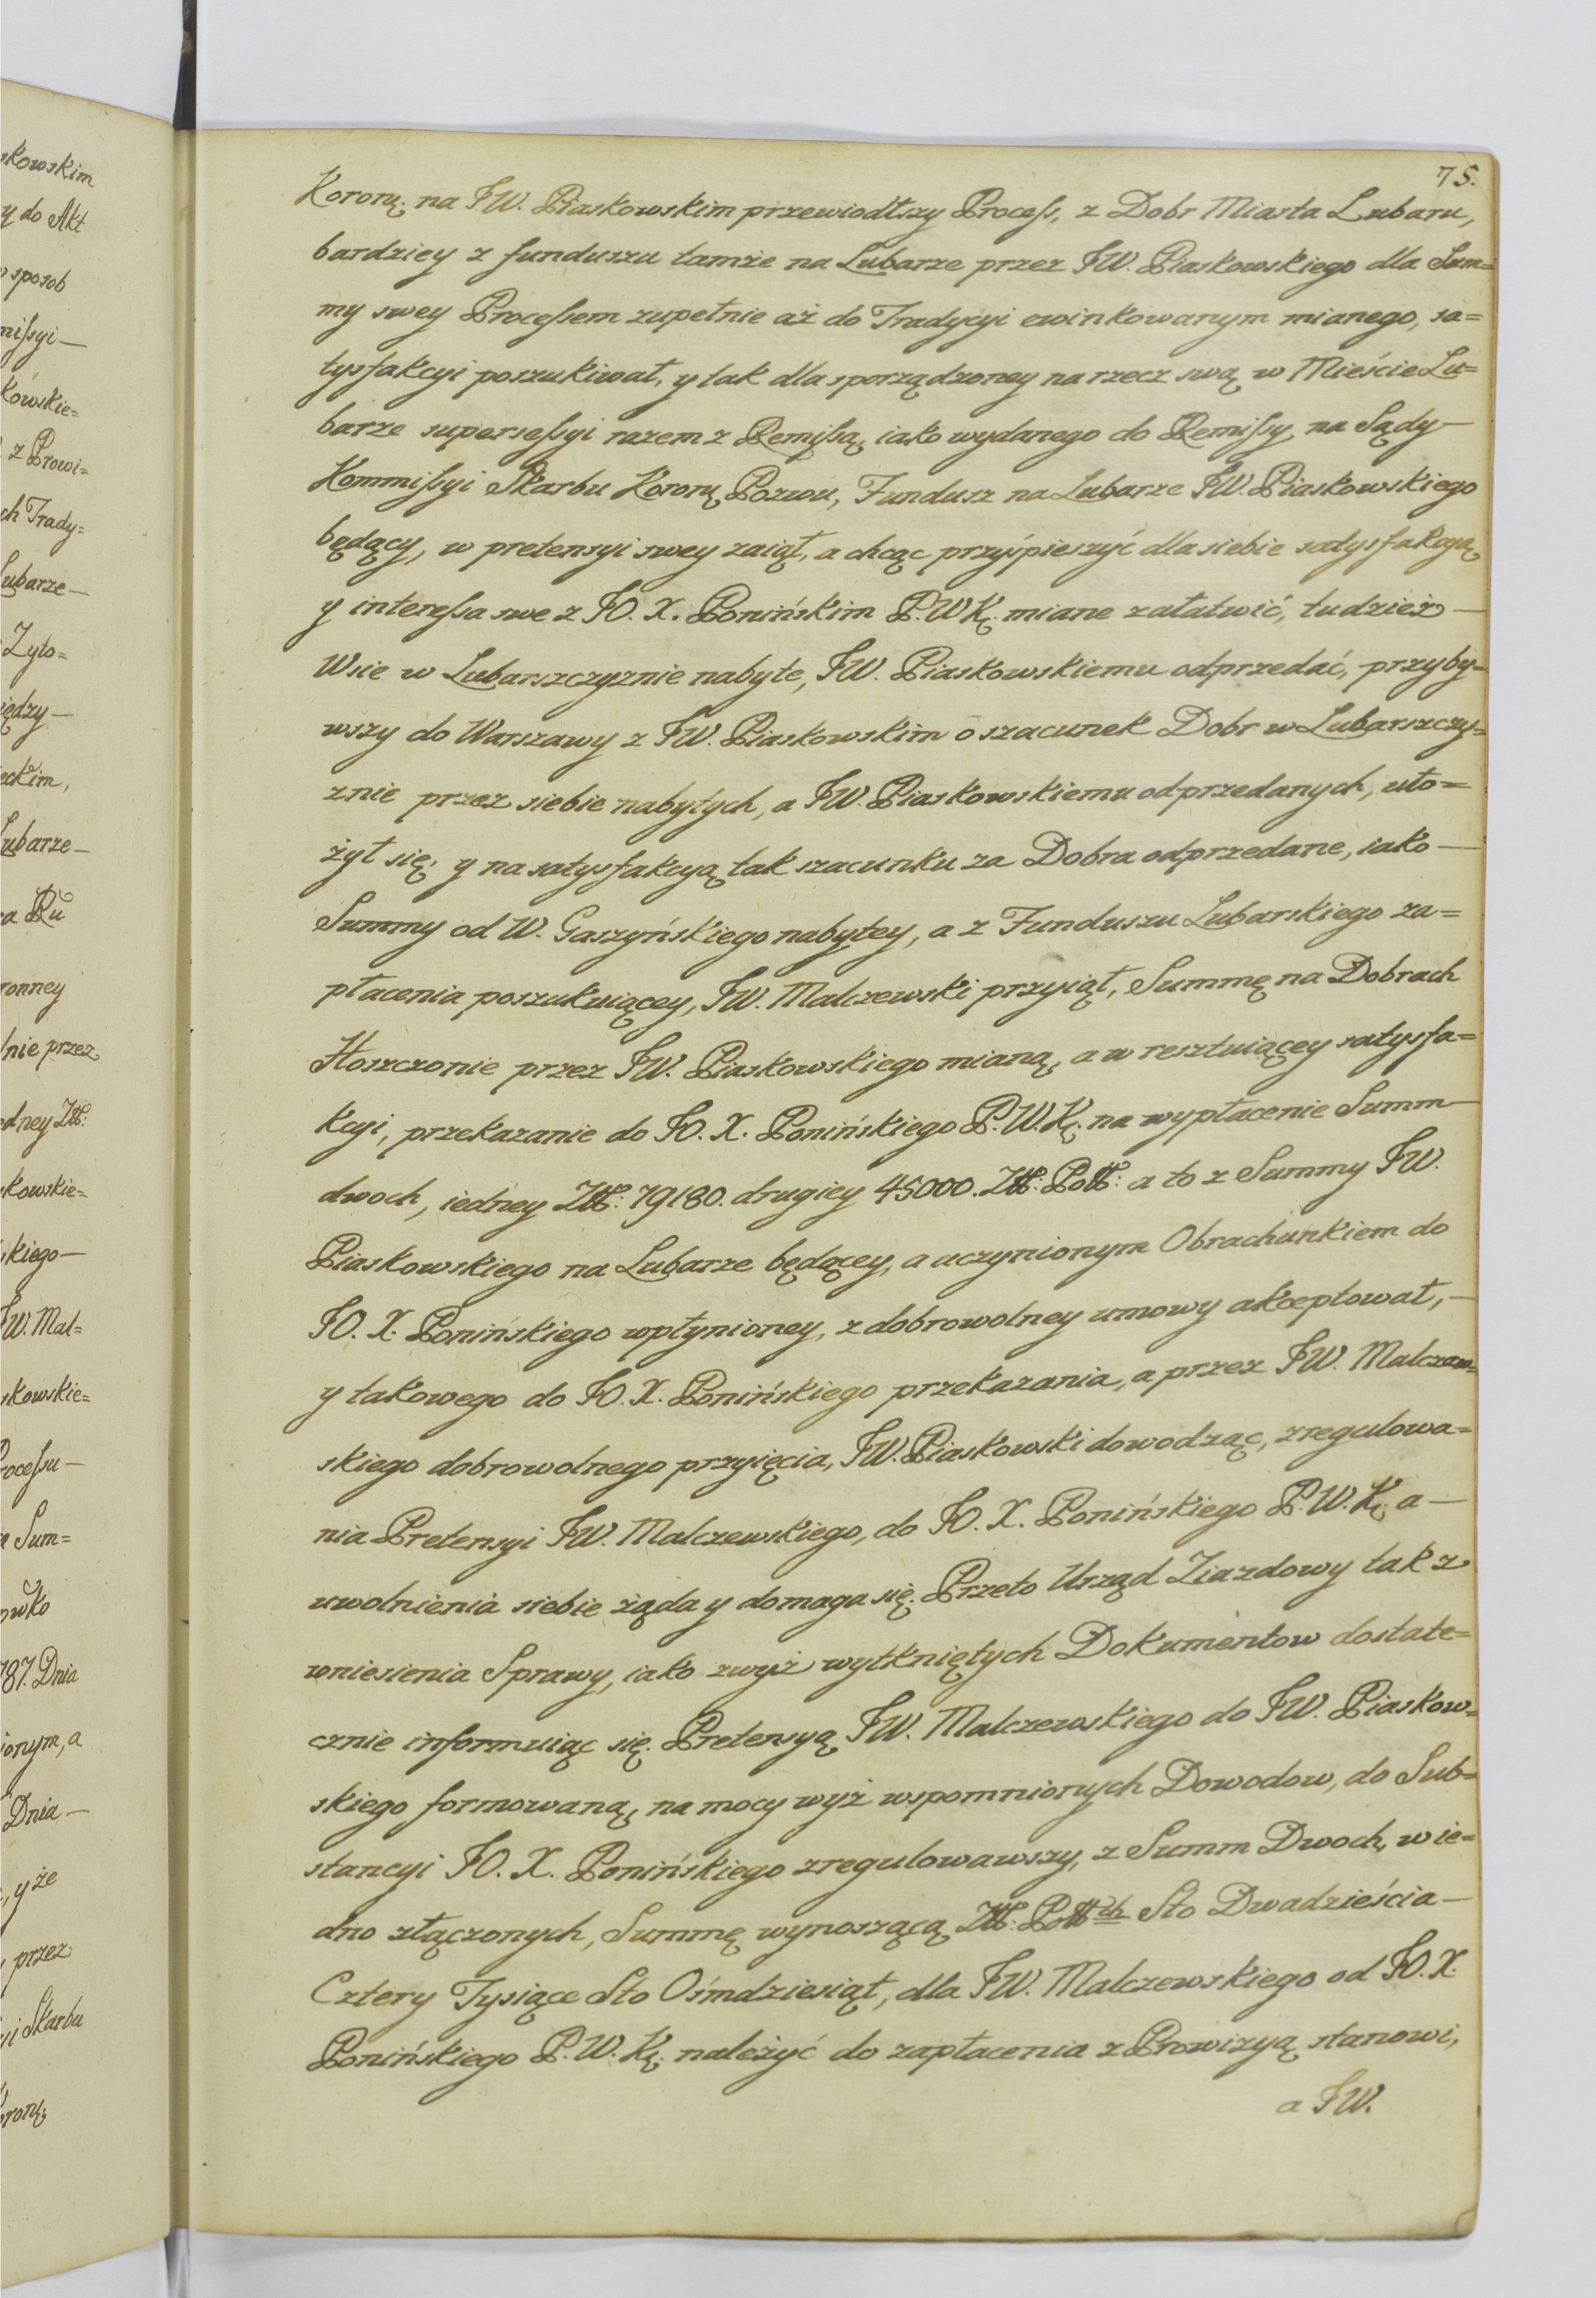 75.
Korony. na JW. Piaskowskim przewiodłszy Process, z Dobr Miasta Lubaru,
bardziey z funduszu tamże na Lubarze przez JW. Piaskowskiego dla Sum=
my swey Processem zupełnie aż do Tradycyi ewinkowanym mianego, sa=
tysfakcyi poszukiwał, y tak dla sporządzoney na rzecz swą w Mieście Lu=
barze supersessyi razem z Remissą, iako wydanego do Remissy na Sądy —
Kommissyi Skarbu Korony Pozwu, Fundusz na Lubarze JW. Piaskowskiego
będący, w pretensyi swey zaiął, a chcąc przyśpieszyć dla siebie satysfakcyą
y interessa swe z JO. X. Ponińskim P. W K. miane załatwić, tudzież —
Wsie w Lubarszczyznie nabyte, JW. Piaskowskiemu odprzedać, przyby=
wszy do Warszawy z JW. Piaskowskim o szacunek Dobr w Lubarszczy=
znie przez siebie nabytych, a JW. Piaskowskiemu odprzedanych, uło=
żył się, y na satysfakcyą tak szacunku za Dobra odprzedane, iako —
Summy od W. Gaszyńskiego nabytey, a z Funduszu Lubarskiego za=
płacenia poszukuiącey, JW. Malczewski przyiął, Summę na Dobrach
Hoszczonie przez JW. Piaskowskiego mianą, a w resztuiącey satysfa=
kcyi, przekazanie do JO. X. Ponińskiego P. W. K. na wypłacenie Summ —
dwoch, iedney Złł: 79180. drugiey 45000. Złł: Poll: a to z Summy JW.
Piaskowskiego na Lubarze będącey, a uczynionym Obrachunkiem do
JO. X. Ponińskiego wpłynioney, z dobrowolney umowy akceptował, —
y takowego do JO. X. Ponińskiego przekazania, a przez JW. Malczew=
skiego dobrowolnego przyięcia, JW. Piaskowski dowodząc, zregulowa=
nia Pretensyi JW. Malczewskiego, do JO. X. Ponińskiego P. W. K. a —
uwolnienia siebie żąda y domaga się. Przeto Urząd Ziazdowy tak z
wniesienia Sprawy, iako zwyż wytkniętych Dokumentow dostate=
cznie informuiąc się. Pretensyą JW. Malczewskiego do JW. Piaskow=
skiego formowaną, na mocy wyż wspomnionych Dowodow, do Sub=
stancyi JO. X. Ponińskiego zregulowawszy, z Summ Dwoch, w ie=
dno złączonych, Summę wynoszącą Złł: Poll:ch Sto Dwadzieścia —
Cztery Tysiące Sto Ośmdziesiąt, dla JW. Malczewskiego od JO. X.
Ponińskiego P. W. K. należyć do zapłacenia z Prowizyą stanowi,
a JW.